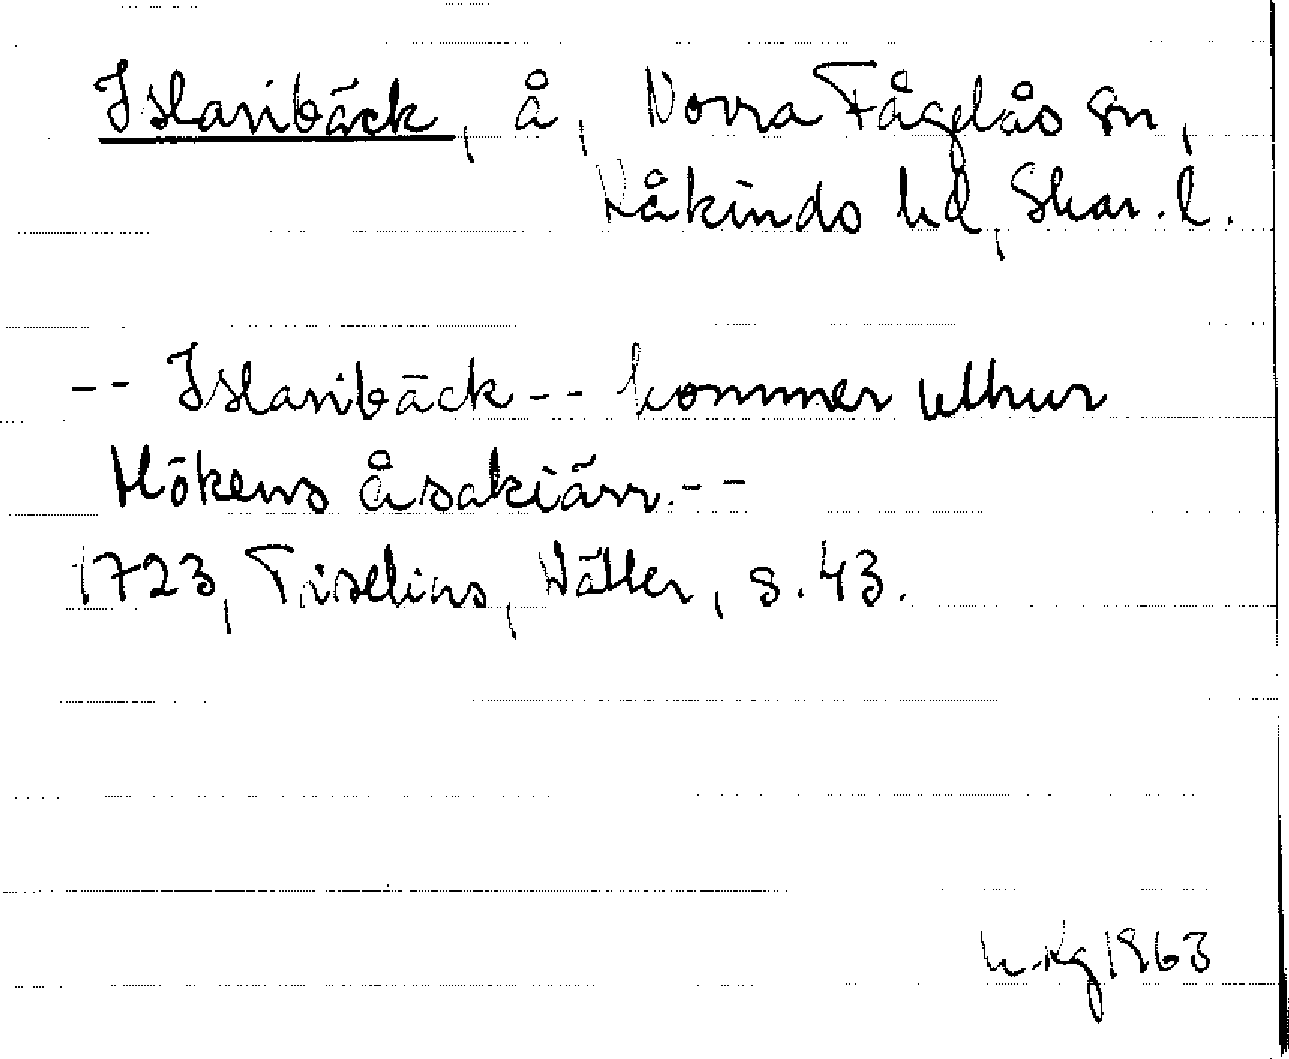 Islanibäck, å, Norra Fågelås sn,
Kåkinds hd, Skar. l.
-- Islanibäck -- kommer uthur
Hökens åsakiärr. --
1723, Tiselius, Wätter, s. 43.
1963